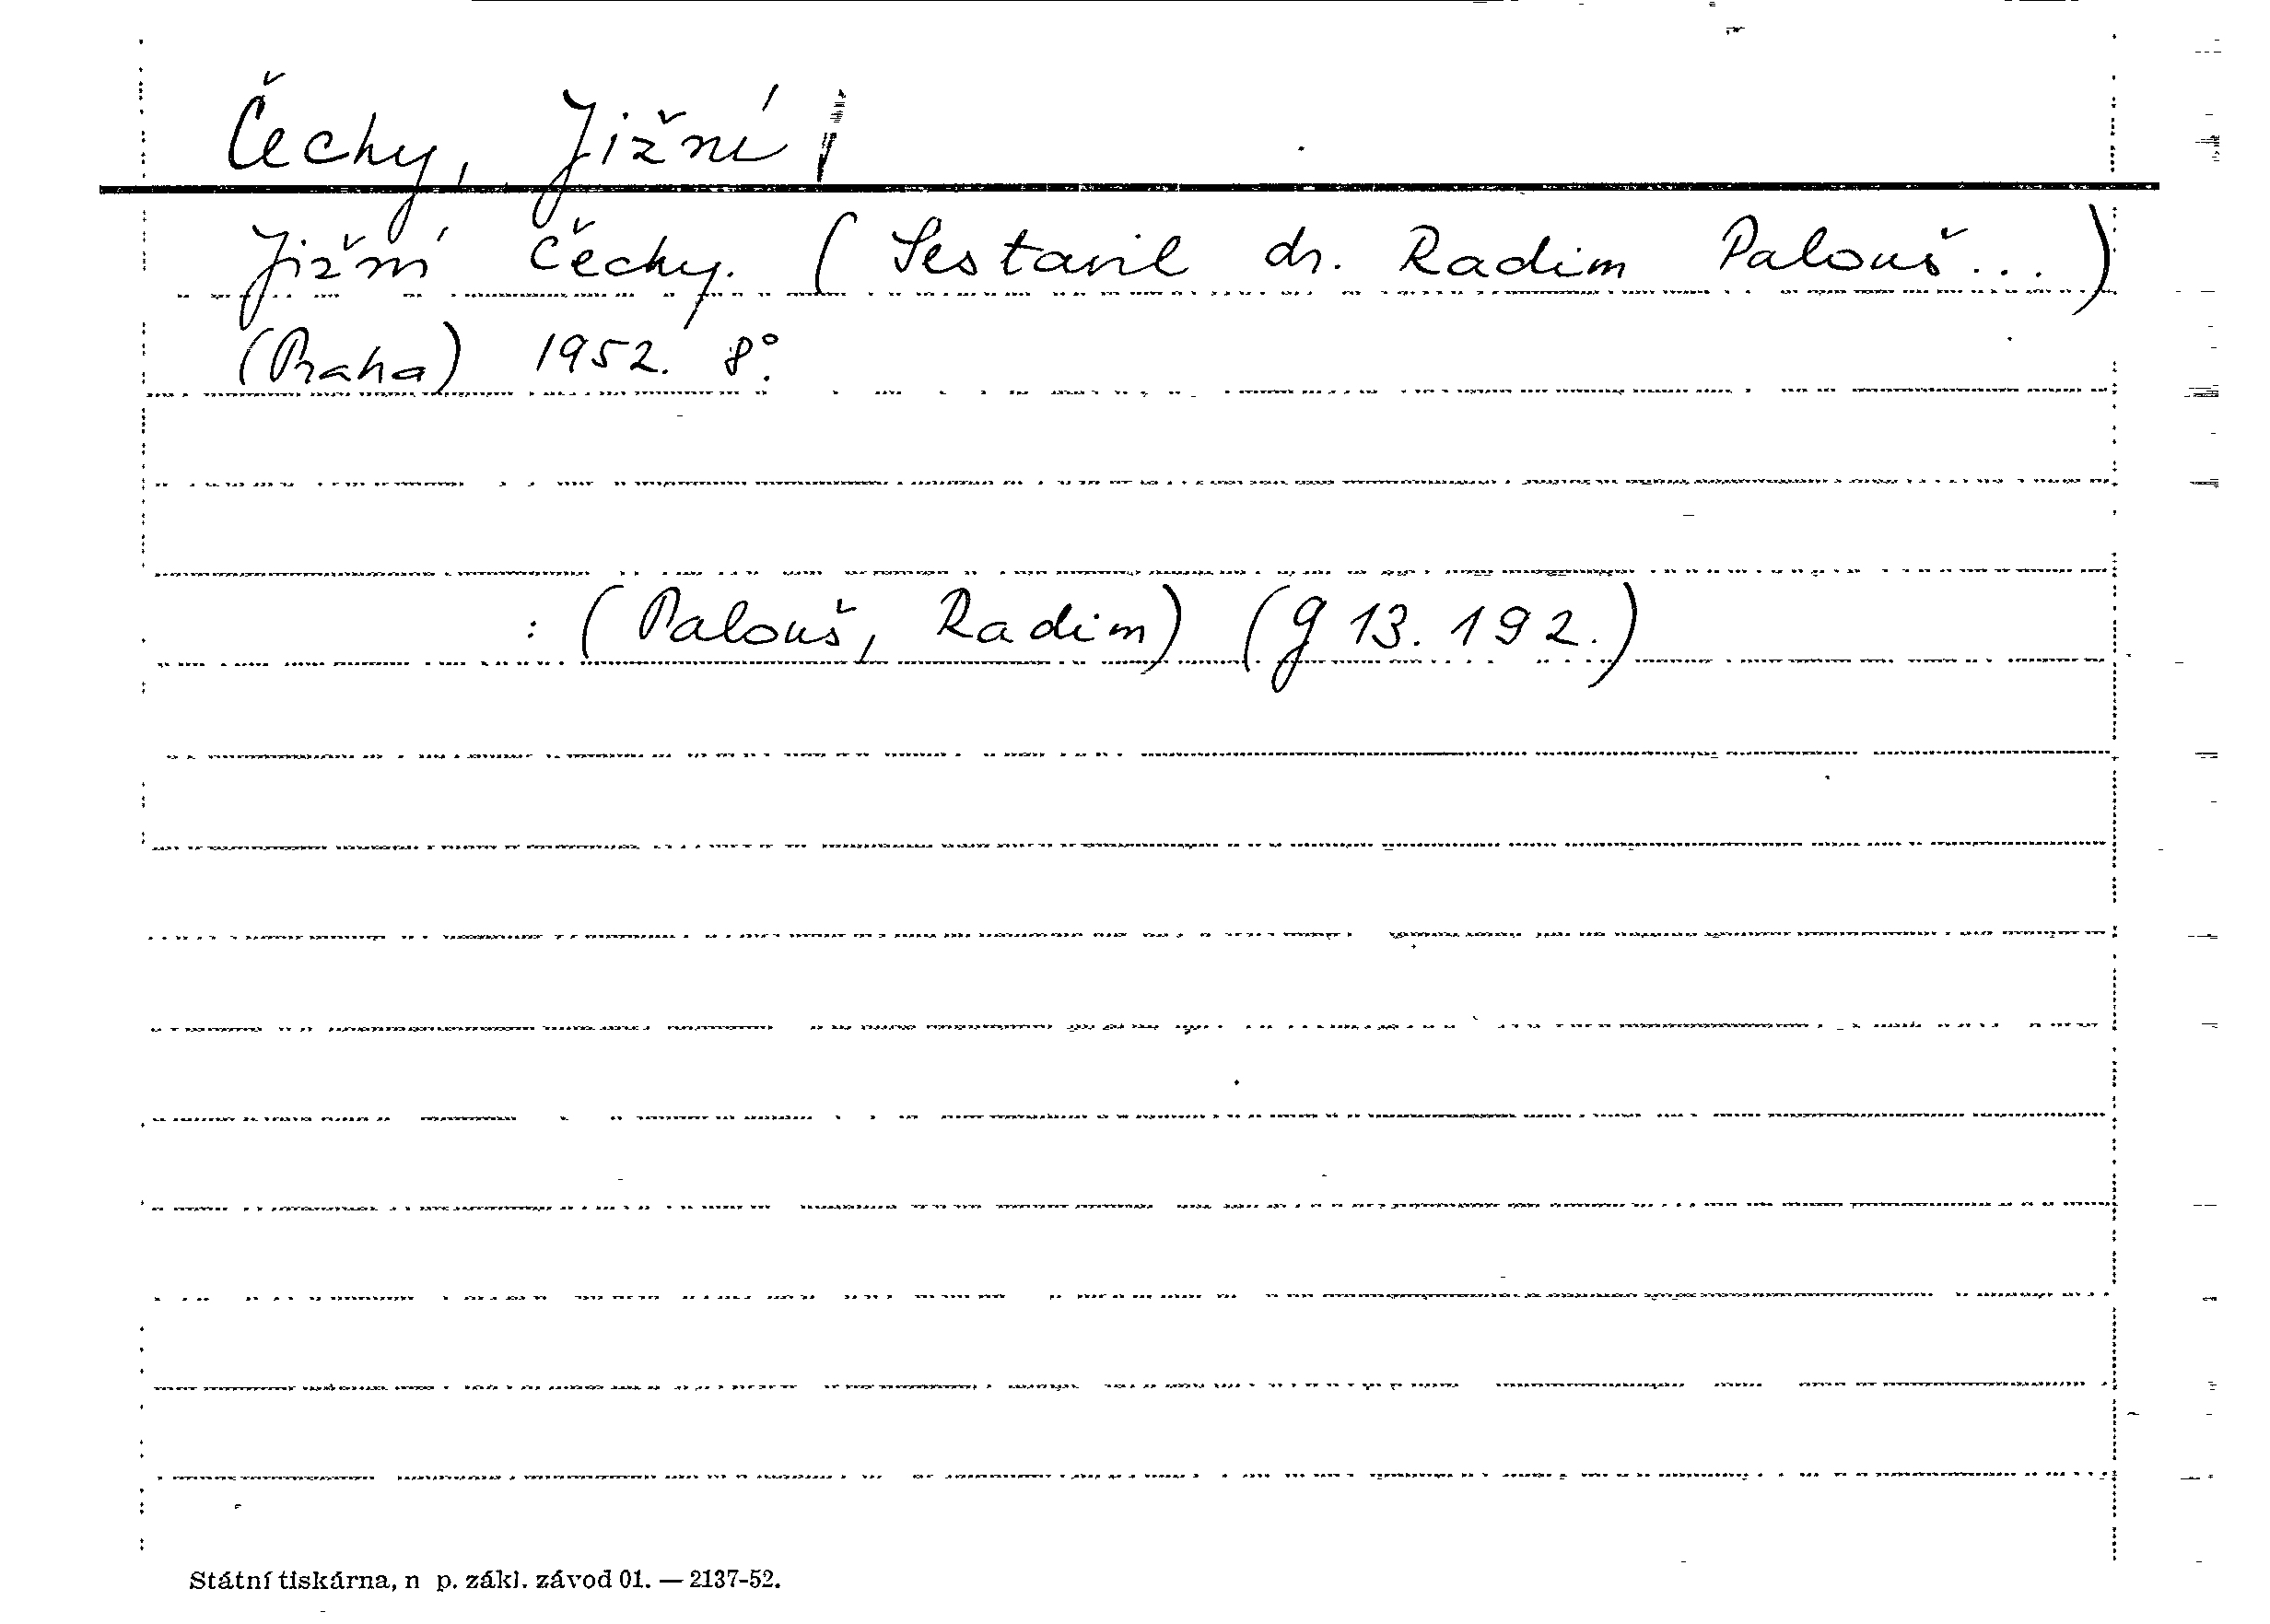 Čechy, Jižní
Jižní Čechy. (Sestavil dr. Radim Palouš...)
(Praha) 1952. 8°.
: (Palouš, Radim) (g 13.192.)
Státní tiskárna, n p. zákl. závod 01. — 2137-52.